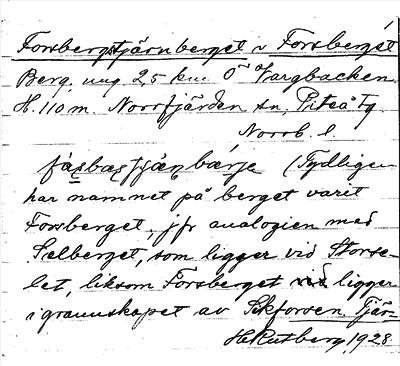 Forsbergstjärnberget v Forsberget
Berg, ung. 2,5 km. O Vargbacken
H. 110 m. Norrfjärden sn, Piteå Tg
Norrb. l.
(Tydligen
har namnet på berget varit
Forsberget, jfr analogien med
Selberget, som ligger vid Storse-
let, liksom Forsberget vid ligger
i grannskapet av Sikforsen Tjär-
H. Rutberg, 1928